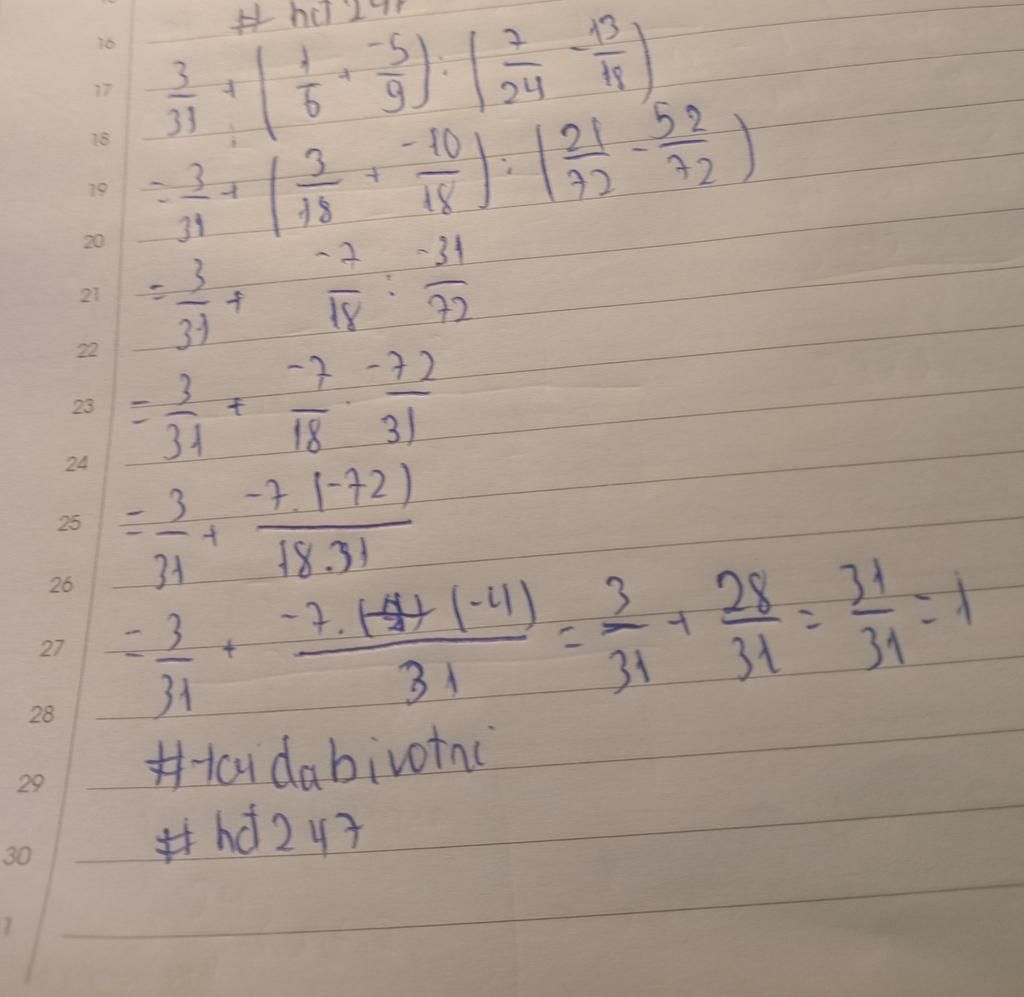 # hđ 247
16
17 3/31 + (1/6 + -5/9) : (7/24 - 13/18)
18
19 = 3/31 + (3/18 + -10/18) : (21/72 - 52/72)
20
21 = 3/31 + -7/18 : -31/72
22
23 = 3/31 + -7/18 . -72/31
24
25 = 3/31 + -7.(-72)/18.31
26
27 = 3/31 + -7.(-4)/31 = 3/31 + 28/31 = 31/31 = 1
28
29 #toidabivotni
30 # hđ 247